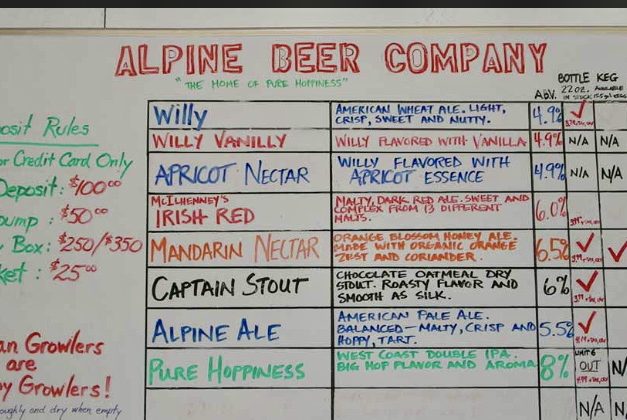 ALPINE BEER COMPANY
"THE HOME OF PURE HOPPINESS"
ABV.
BOTTLE
22 oz.
IN STOCK
KEG
AVAILABLE
Willy
AMERICAN WHEAT ALE. LIGHT,
CRISP, SWEET AND NUTTY.
4.9%
WILLY VANILLY
WILLY FLAVORED WITH VANILLA
4.9%
N/A
N/A
APRICOT NECTAR
WILLY FLAVORED WITH
APRICOT ESSENCE
4.9%
N/A
N/A
McILHENNEY'S
IRISH RED
MALTY, DARK RED ALE. SWEET AND
COMPLEX FROM 13 DIFFERENT
MALTS.
6.0%
MANDARIN NECTAR
ORANGE BLOSSOM HONEY ALE.
MADE WITH ORGANIC ORANGE
ZEST AND CORIANDER.
6.5%
CAPTAIN STOUT
CHOCOLATE OATMEAL DRY
STOUT. ROASTY FLAVOR AND
SMOOTH AS SILK.
6%
ALPINE ALE
AMERICAN PALE ALE.
BALANCED-MALTY, CRISP AND
HOPPY, TART.
5.5%
PURE HOPPINESS
WEST COAST DOUBLE IPA.
BIG HOP FLAVOR AND AROMA
8%
OUT
N/
N/A
N/
osit Rules
or Credit Card Only
Deposit: $100.00
ump: $50.00
Box: $250/$350
ket: $25.00
an Growlers
are
py Growlers!
oughly and dry when empty